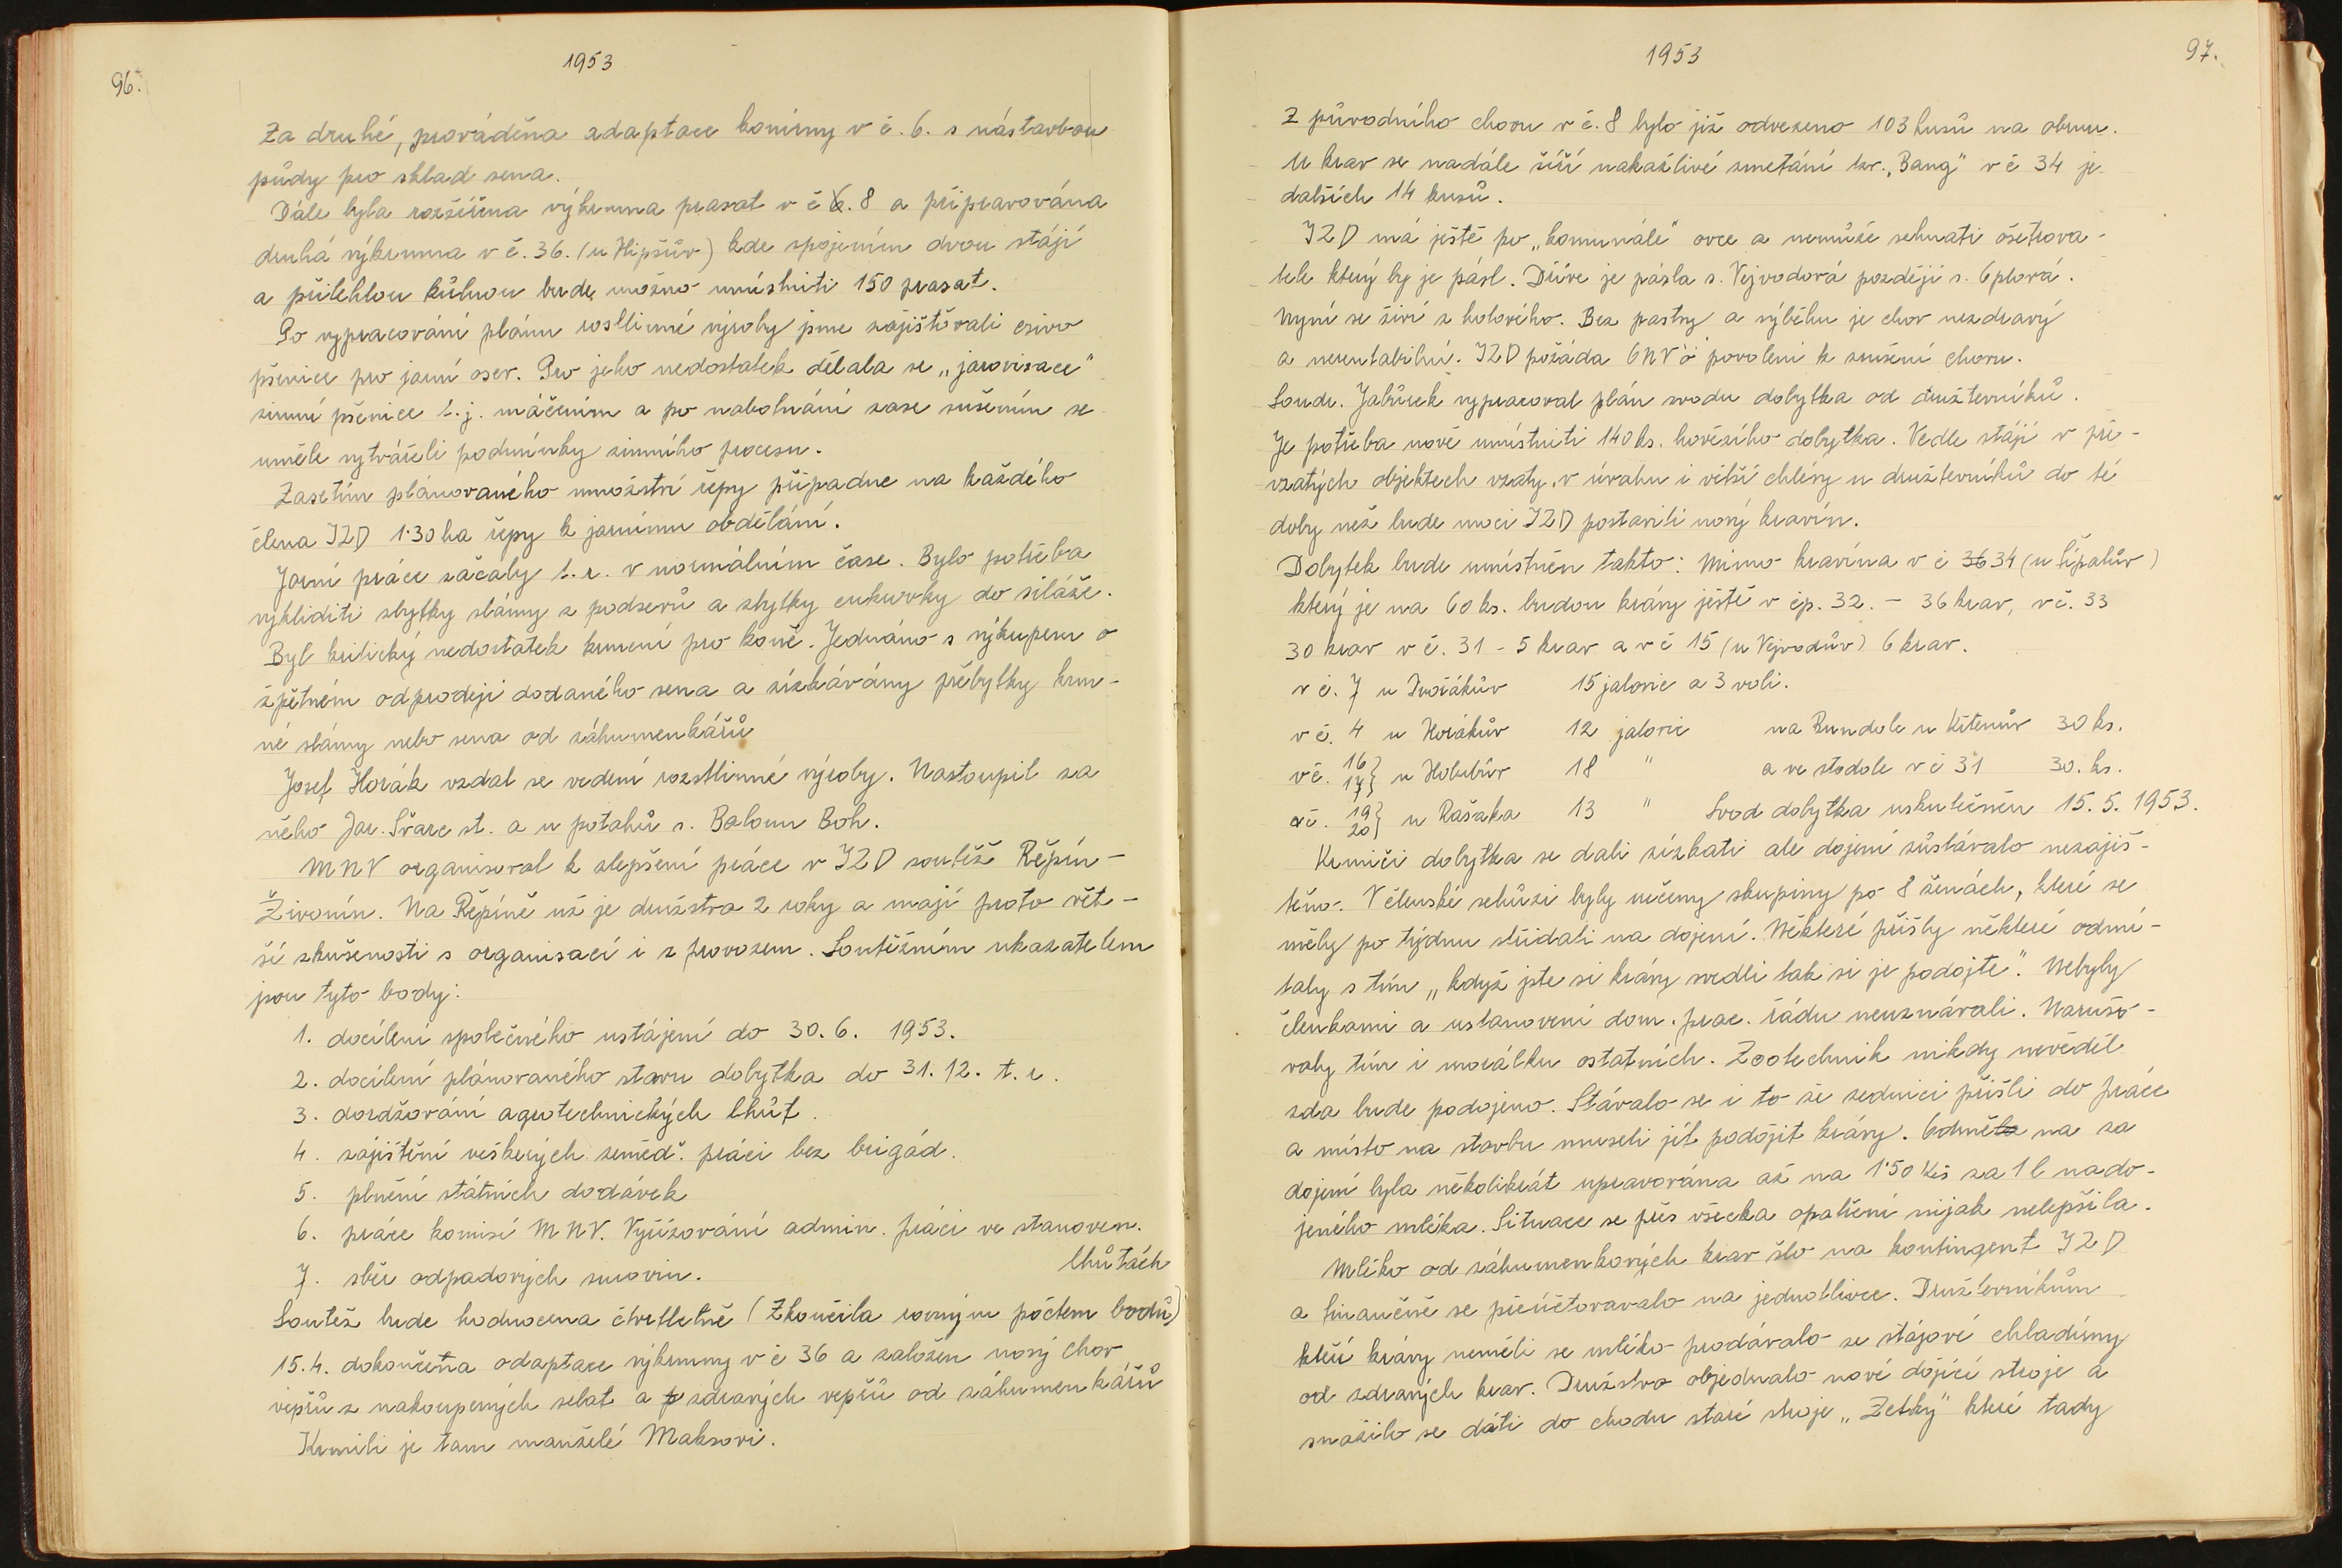 96.
1953
Za druhé, prováděna adaptace konírny v č. 6. s nástavbou
půdy pro sklad sena.
Dále byla rozšířena výkrmna prasat v č 6. 8 a připravována
druhá výkrmna v č. 36. (u Hipšův) kde spojením dvou stájí
a přilehlou kůlnou bude možno umístniti 150 prasat.
Po vypracování plánu rostlinné výroby jsme zajišťovali osivo
pšenice pro jarní osev. Pro jeho nedostatek dělala se „jarovisace"
zimní pšenice t.j. máčením a po nabobtnání zase sušením se
uměle vytvářeli podmínky zimního procesu.
Zasetím plánovaného množství řepy připadne na každého
člena JZD 1·30 ha řepy k jarnímu obdělání.
Jarní práce začaly t.r. v normálním čase. Bylo potřeba
vykliditi zbytky slámy z podsevů a zbytky cukrovky do siláže.
Byl kritický nedostatek krmení pro koně. Jednáno s výkupem o
zpětném odprodeji dodaného sena a získávány přebytky krm-
né slámy nebo sena od záhumenkářů
Josef Horák vzdal se vedení rozstlinné výroby. Nastoupil za
něho Jar. Švarc st. a u potahů s. Baloun Boh.
MNV organisoval k zlepšení práce v JZD soutěž Řepín-
Živonín. Na Řepíně už je družstvo 2 roky a mají proto vět-
ší zkušenosti s organisací i s provozem. Soutěžním ukazatelem
jsou tyto body:
1. docílení společného ustájení do 30. 6. 1953.
2. docílení plánovaného stavu dobytka do 31. 12. t. r.
3. dordžování agrotechnických lhůt.
4. zajištění veškerých zeměd. prací bez brigád.
5. plnění státních dodávek
6. práce komisí MNV. Vyřizování admin. prací ve stanoven.
lhůtách
7. sběr odpadových surovin.
Soutěž bude hodnocena čtvrtletně (Zkončila rovným počtem bodů)
15.4. dokončena adaptace výkrmny v č 36 a založen nový chov
vepřů z nakoupených selat a zdravých vepřů od záhumenkářů
Krmili je tam manželé Maksovi.
1953
97.
Z původního chovu v č. 8 bylo již odvezeno 103 kusů na
U krav se nadále šíří nakažlivé zmetání tzv. „Bang" v č 34 je
dalších 14 kusů.
JZD má ještě po „komunále" ovce a nemůže sehnati ošetřova-
tele který by je pásl. Dříve je pásla s. Vejvodová později s.
Nyní se živí z holového. Bez pastvy a výběhu je chov nezdravý
a nerentabilní. JZD požádá ONV o povolení k zrušení chovu.
Soudr. Jabůrek vypracoval plán svodu dobytka od družterníků.
Je potřeba nově umístniti 140 ks. hovězího dobytka. Vedle stájí v pře-
vzatých objektech vzaty v úvahu i větší chlévy u družterníků do té
doby než bude moci JZD postaviti nový kravín.
Dobytek bude umístněn takto: Mimo kravína v č 36 34 (u Šípalův)
který je na 60 ks. budou krávy ještě v čp. 32. – 36 krav, v č. 33
30 krav v č. 31 – 5 krav a v č 15 (u Vejvodův) 6 krav.
v č. 7 u Dvořákův 15 jalovic a 3 voli.
v č. 4 u Horákův 12 jalovic na Rundole u Křtenův 30 ks.
v č. 16 17} u Holubův 18 " a ve stodole v č 31 30. ks.
a č. 19 20} u Rašaka 13 " Svod dobytka uskutečněn 15. 5. 1953.
Krmiči dobytka se dali získati ale dojení zůstávalo nezajiš-
těno. V členské schůzi byly určeny skupiny po 8 ženách, které se
měly po týdnu střídati na dojení. Některé přišly některé odmí-
taly s tím „když jste si krávy svedli tak si je podojte". Nebyly
členkami a ustanovení dom. prac. řádu neuznávali. Narušo-
valy tím i morálku ostatních. Zootechnik nikdy nevěděl
zda bude podojeno. Stávalo se i to že zedníci přišli do práce
a místo na stavbu museli jít podojit krávy. Odměna za
dojení byla několikrát upravována až na 1·50 Kčs za 1 l nado-
jeného mléka. Situace se přes všecka opatření nijak nelepšila.
Mléko od záhumenkových krav šlo na kontingent JZD
a finančně se přeúčtovavalo na jednotlivce. Družterníkům
kteří krávy neměli se mléko prodávalo ze stájové chladírny
od zdravých krav. Družstvo objednalo nové dojící stroje a
snažilo se dáti do chodu staré stroje „Zetky" které tady